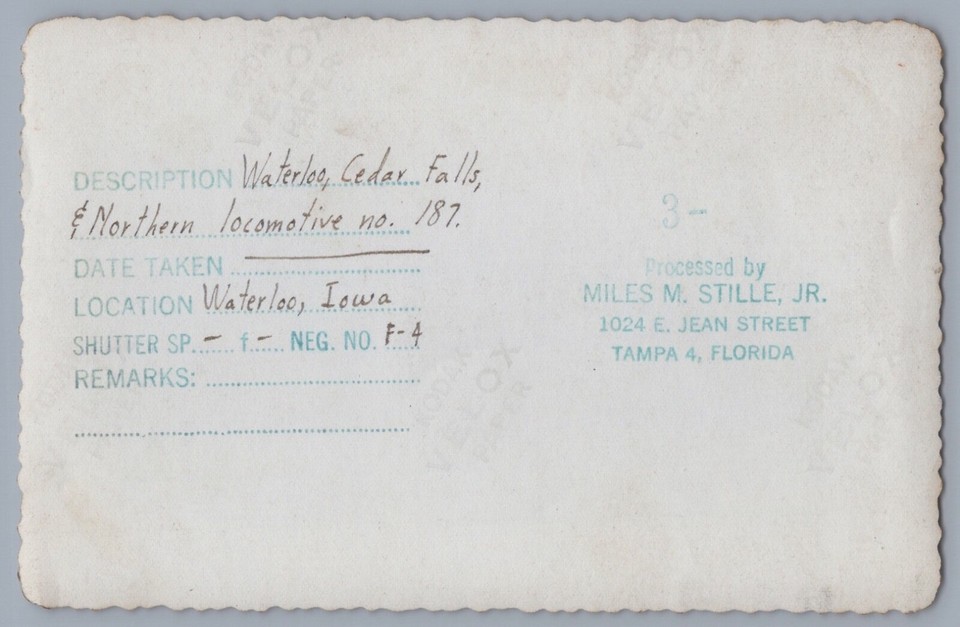 DESCRIPTION Waterloo, Cedar Falls,
& Northern locomotive no. 187.
DATE TAKEN
LOCATION Waterloo, Iowa
SHUTTER SP. - f - NEG. NO. F-4
REMARKS:
3-
Processed by
MILES M. STILLE, JR.
1024 E. JEAN STREET
TAMPA 4, FLORIDA
KODAK
VELOX
PAPER
KODAK
VELOX
PAPER
KODAK
VELOX
PAPER
KODAK
VELOX
PAPER